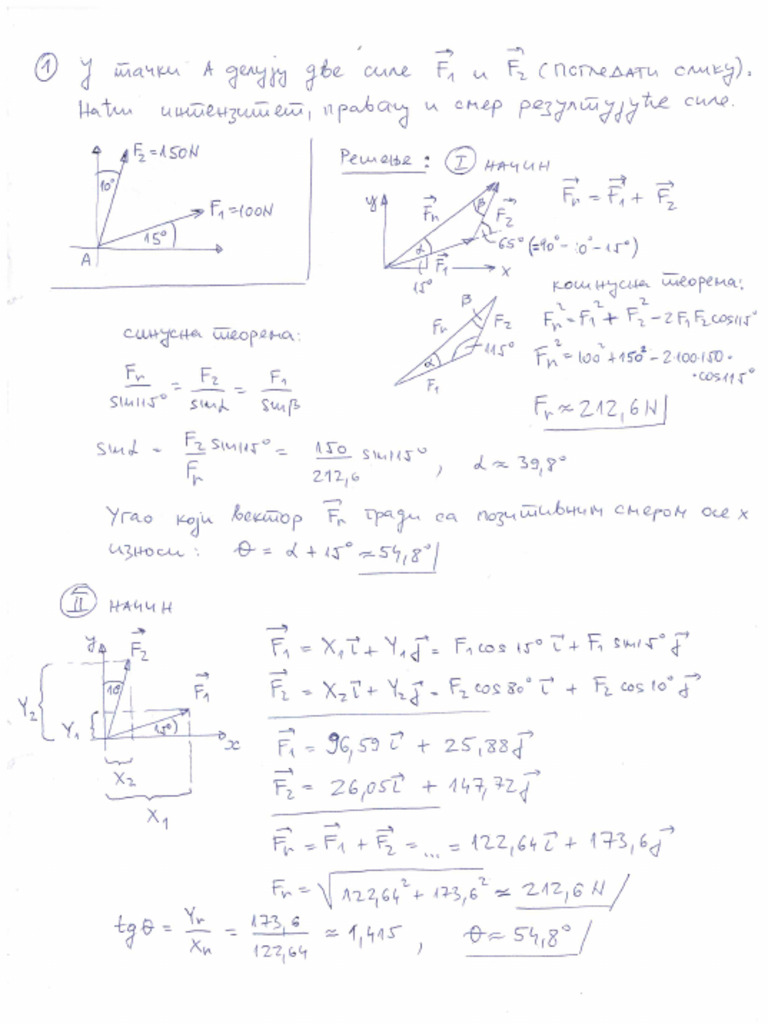 ① У тачки А делују две силе F⃗₁ и F⃗₂ (погледати слику).
Наћи интензитет, правац и смер резултујуће силе.
F₂=150N
10°
F₁=100N
15°
A
Решење: Ⅰ начин
F⃗r = F⃗₁ + F⃗₂
y
F⃗r
β
F⃗₂
α
65° (=90°-10°-15°)
F⃗₁
x
15°
косинусна теорема:
Fr² = F₁² + F₂² - 2F₁F₂cos115°
Fr² = 100² + 150² - 2·100·150·
·cos115°
Fr ≈ 212,6 N
β
Fr
F₂
α
115°
F₁
синусна теорема:
Fr/sin115° = F₂/sinα = F₁/sinβ
sinα = F₂/Fr sin115° = 150/212,6 sin115°, α ≈ 39,8°
Угао који вектор F⃗r гради са позитивним смером осе x
износи: θ = α + 15° ≈ 54,8°
Ⅱ начин
y
F⃗₂
10°
F⃗₁
Y₂
Y₁
15°
x
X₂
X₁
F⃗₁ = X₁i⃗ + Y₁j⃗ = F₁cos15° i⃗ + F₁ sin15° j⃗
F⃗₂ = X₂i⃗ + Y₂j⃗ = F₂cos80° i⃗ + F₂ cos10° j⃗
F⃗₁ = 96,59 i⃗ + 25,88 j⃗
F⃗₂ = 26,05 i⃗ + 147,72 j⃗
F⃗r = F⃗₁ + F⃗₂ = ... = 122,64 i⃗ + 173,6 j⃗
Fr = √(122,64² + 173,6²) ≈ 212,6 N
tgθ = Yr/Xr = 173,6/122,64 ≈ 1,415, θ ≈ 54,8°